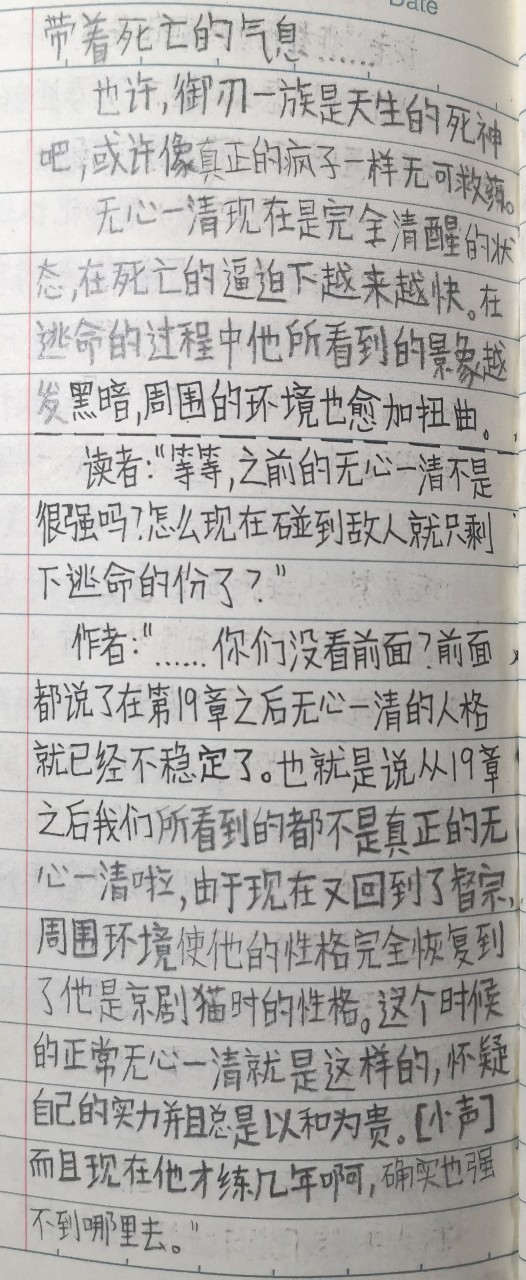 Date
带着死亡的气息……
也许,御刃一族是天生的死神
吧,或许像真正的疯子一样无可救药。
无心一清现在是完全清醒的状
态,在死亡的逼迫下越来越快。在
逃命的过程中他所看到的景象越
发黑暗,周围的环境也愈加扭曲。
读者:“等等,之前的无心一清不是
很强吗?怎么现在碰到敌人就只剩
下逃命的份了?”
作者:“……你们没看前面?前面
都说了在第19章之后无心一清的人格
就已经不稳定了。也就是说从19章
之后我们所看到的都不是真正的无
心一清啦,由于现在又回到了督宗,
周围环境使他的性格完全恢复到
了他是京剧猫时的性格。这个时候
的正常无心一清就是这样的,怀疑
自己的实力并且总是以和为贵。[小声]
而且现在他才练几年啊,确实也强
不到哪里去。”